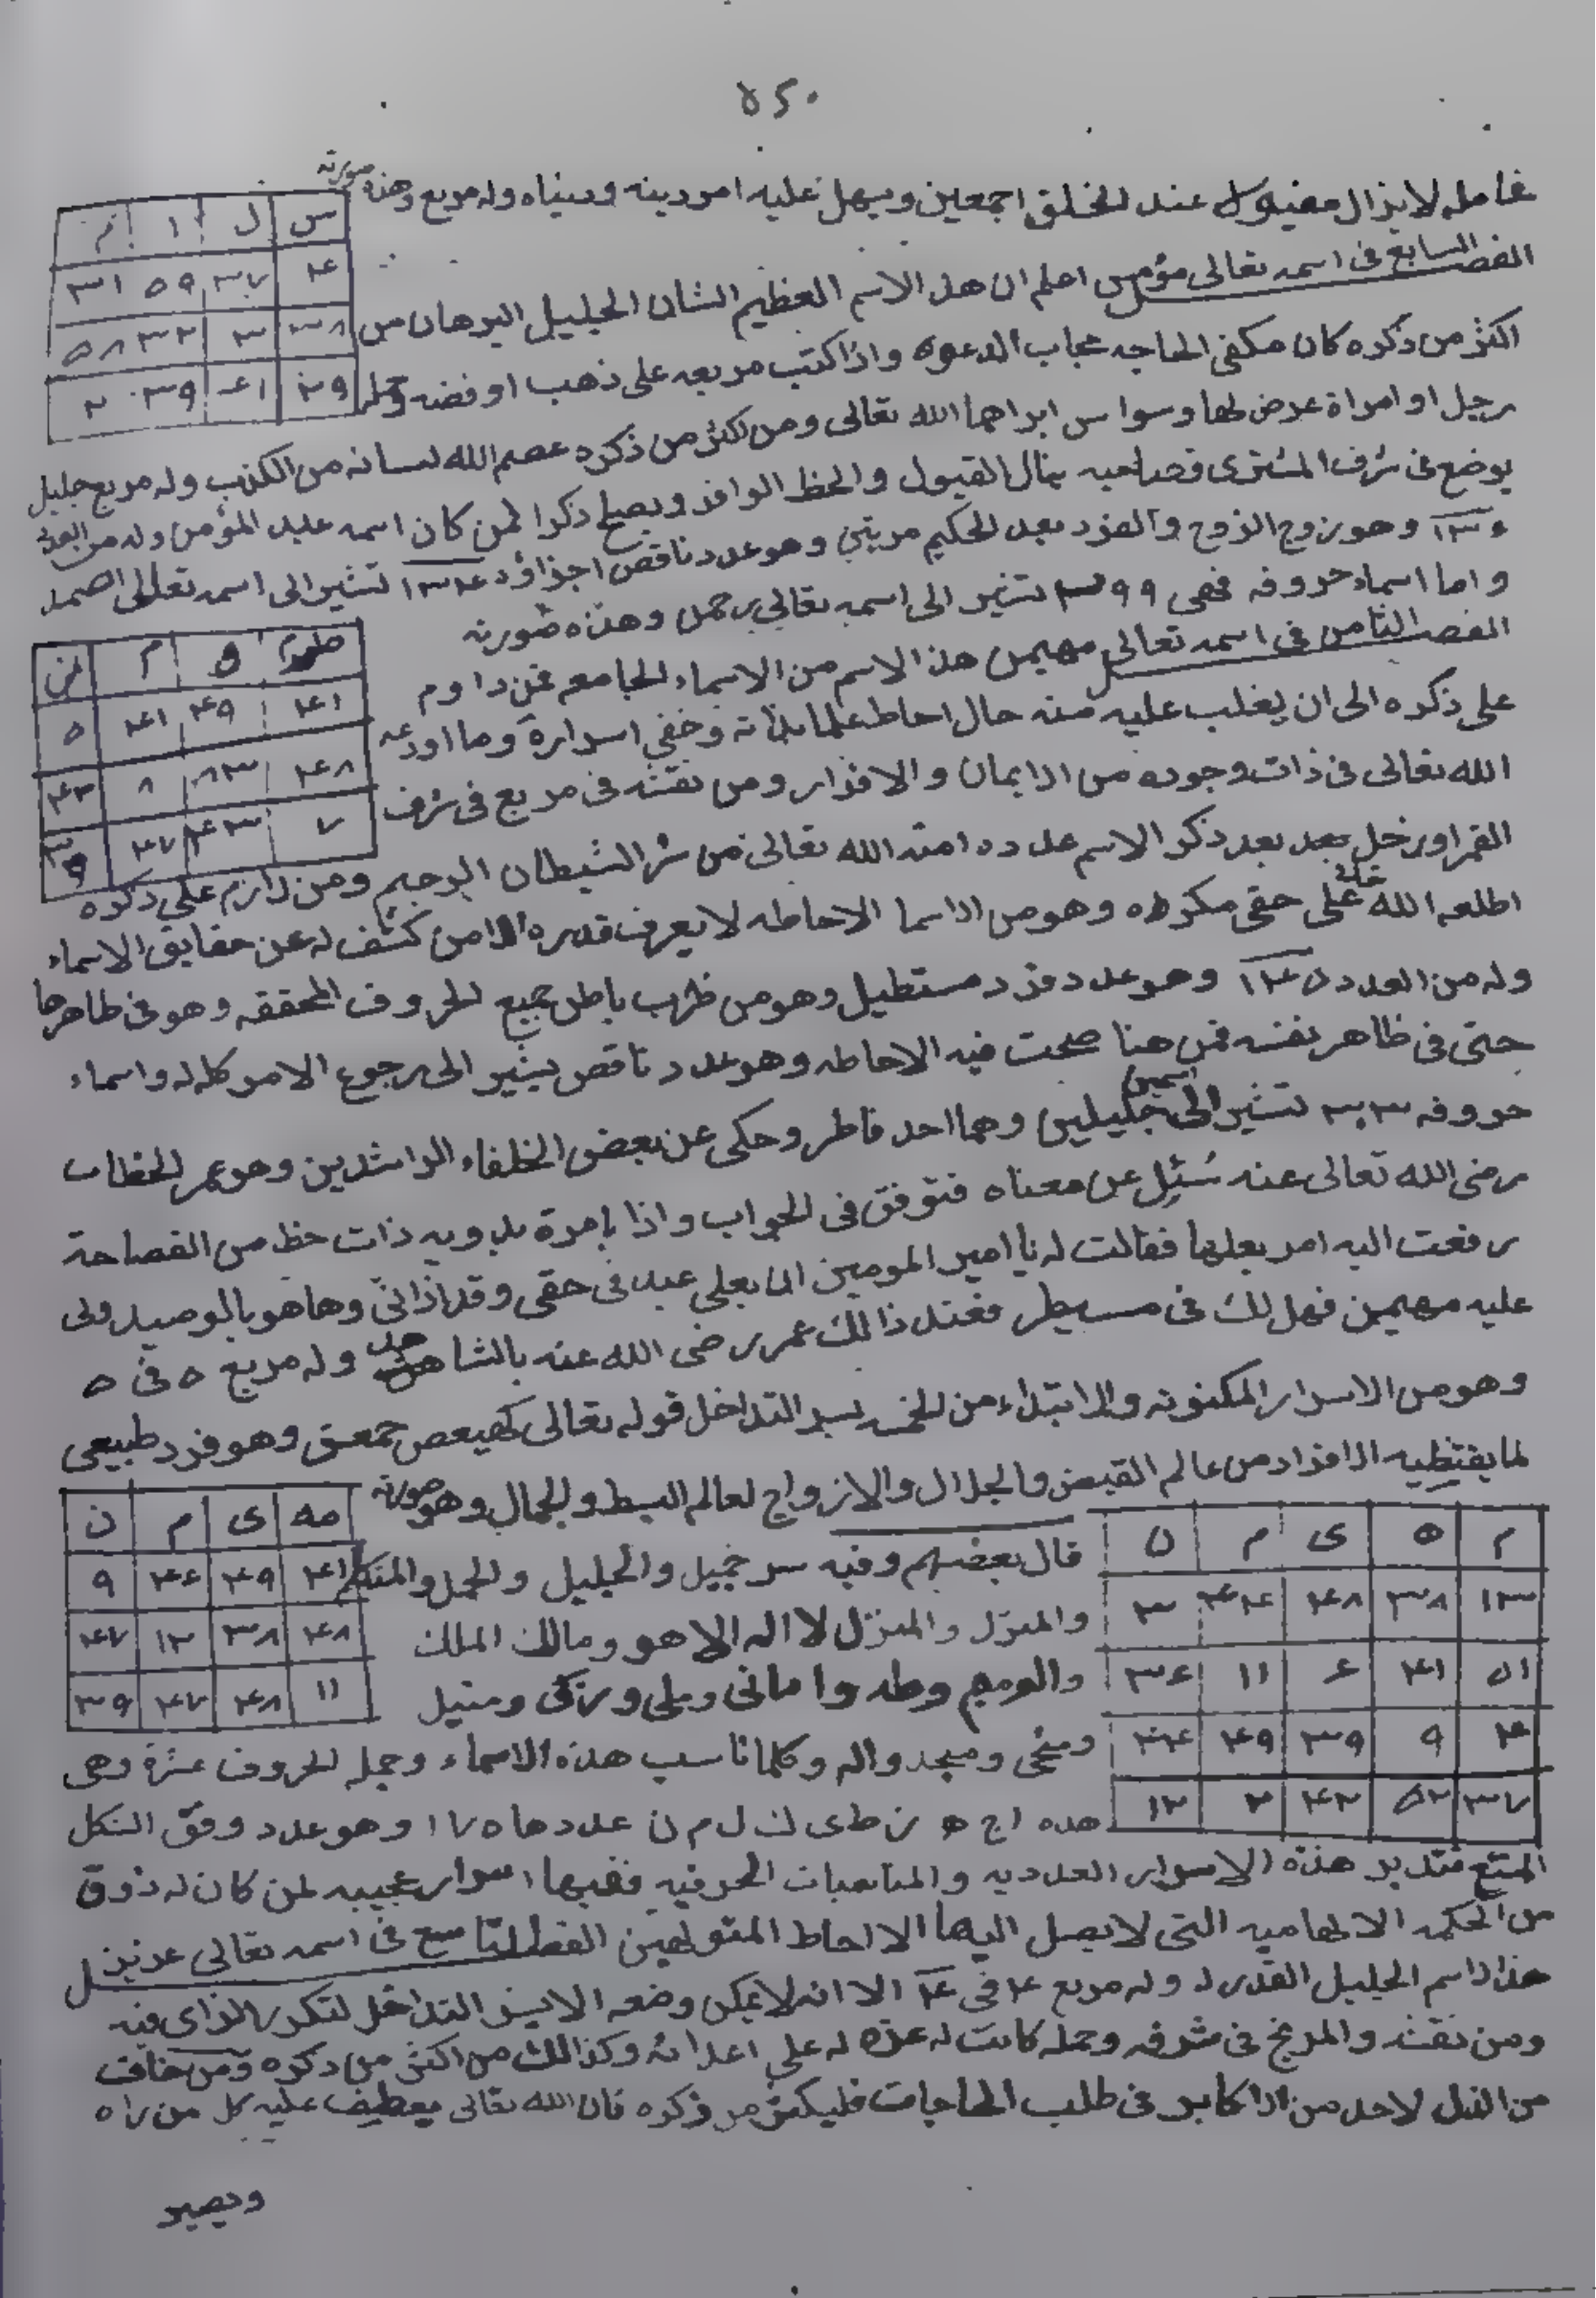 ٥٢٠
فحامله لا يزال مقبول عند الخلق اجمعين ويسهل عليه امر دينه ودنياه وله مربع وهذه صورته
س ل ا م
٤ ٣٧ ٥٩ ٣١
٣٨ ٣ ٣٢ ٥٨
الفصل السابع فى اسمه تعالى مؤمن اعلم ان هذ الاسم العظيم الشان الجليل البرهان من
اكثر من ذكره كان مكفى الحاجه مجاب الدعوه واذا كتب مربعه على ذهب او فضه وحمله
رجل او امراة عرض لها وسواس ابراهما الله تعالى ومن اكثر من ذكره عصم الله لسانه من الكذب وله مربع جليل
يوضع فى شرف المشترى فصاحبه ينال القبول والحظ الوافر ويصلح ذكرا لمن كان اسمه عبد المؤمن وله من العدد
وهو زوج الزوج والفرد بعد الحكيم مرتين وهو عدد ناقص اجزاؤه ١٣٤ تشير الى اسمه تعالى الصمد
واما اسماء حروفه فهى ٣٩٩ تشير الى اسمه تعالى رحمن وهذه صورته
الفصل الثامن فى اسمه تعالى مهيمن هذ الاسم من الاسماء الجامعه فمن داوم
م من
٤١ ٤٩ ٤١ ٥
٤٨ ٨ ٤٣
على ذكره الى ان يغلب عليه منه حال احاط علما بذاته وخفى اسراره وما اودعه
الله تعالى فى ذات وجوده من الايمان والاقرار ومن نقشه فى مربع فى شرف
القمر او زحل بعد ذكر الاسم عدده امنه الله تعالى من شر الشيطان الرجيم ومن لازم على ذكره
اطلعه الله على حقى مكره وهو من الاسما الاحاطه لا يعرف قدره الا من كشف له عن حقايق الاسماء
وله من العدد ١٤٥ وهو عدد فرد مستطيل وهو من باطن جميع الحروف المحققه وهو فى ظاهرها
حتى فى ظاهر نفسه فمن هنا صحت فيه الاحاطه وهو عدد ناقص يشير الى رجوع الامر كله له واسماء
حروفه ٣٠٣ تشير الى اسمين جليلين وهما احد فاطر وحكى عن بعض الخلفاء الراشدين وهو عمر الخطاب
رضى الله تعالى عنه سُئِل عن معناه فتوقف فى الجواب واذا بامرة بدويه ذات حظ من الفصاحة
رفعت اليه امر بعلها فقالت له يا امير المومنين ان بعلى عبد فى حقى وقد اذانى وها هو بالوصيد ولى
عليه مهيمن فهل لك فى مسيطر فعند ذالك عمر رضى الله عنه بالشاهد وله مربع ٥ فى ٥
وهو من الاسرار المكنونه والابتداء من الخمسه بسر التداخل قوله تعالى كهيعص حمعسق وهو فرد طبيعى
لما يقتضيه الافراد من عالم القبض والجلال والازواج لعالم البسط والجمال وهو صورته
م ه ى م ن
١٣ ٣٨ ٤٨ ٤٤ ٣
٥١ ٤١ ٤ ١١ ٣٤
٤ ٩ ٣٩ ٤٩ ٤٤
٣٧ ٥٢ ٤٢ ٢ ١٢
مه ى م ن
٤١ ٤٩ ٤٤ ٩
٤٨ ٣٨ ١٢ ٤٧
١١ ٤٨ ٤٧ ٣٩
قال بعضهم وفيه سر جميل والجليل والجمل والمتكلم
والمنزل والمنزل لا اله الا هو ومالك الملك
وطه واماني وملى وزكى ومنيل
ومنجى ومجد واله وكلما ناسب هذه الاسماء وجمله الحروف عشرة وهى
هده ا ج ه ز ط ى ك ل م ن عددها ١٧٥ وهو عدد وفق الشكل
المتسع فتدبر هذه الاسرار العدديه والمناسبات الحرفيه ففيها اسرار عجيبه لمن كان له ذوق
من الحكمه الالهاميه التى لا يصل اليها الا احاط المتولهين الفصل التاسع فى اسمه تعالى عزيز
هذا الاسم الجليل القدر له وله مربع ٤ فى ٤ الا انه لا يمكن وضعه الا بسر التداخل لتكرر الزاى فيه
ومن نقشه والمريخ فى شرفه وحمله كانت له عزه له على اعدائه وكذالك من اكثر من ذكره ومن خاف
من الذل لاحد من الاكابر فى طلب الحاجات فليكثر من ذكره فان الله تعالى يعطيف عليه كل من راه
ويصير